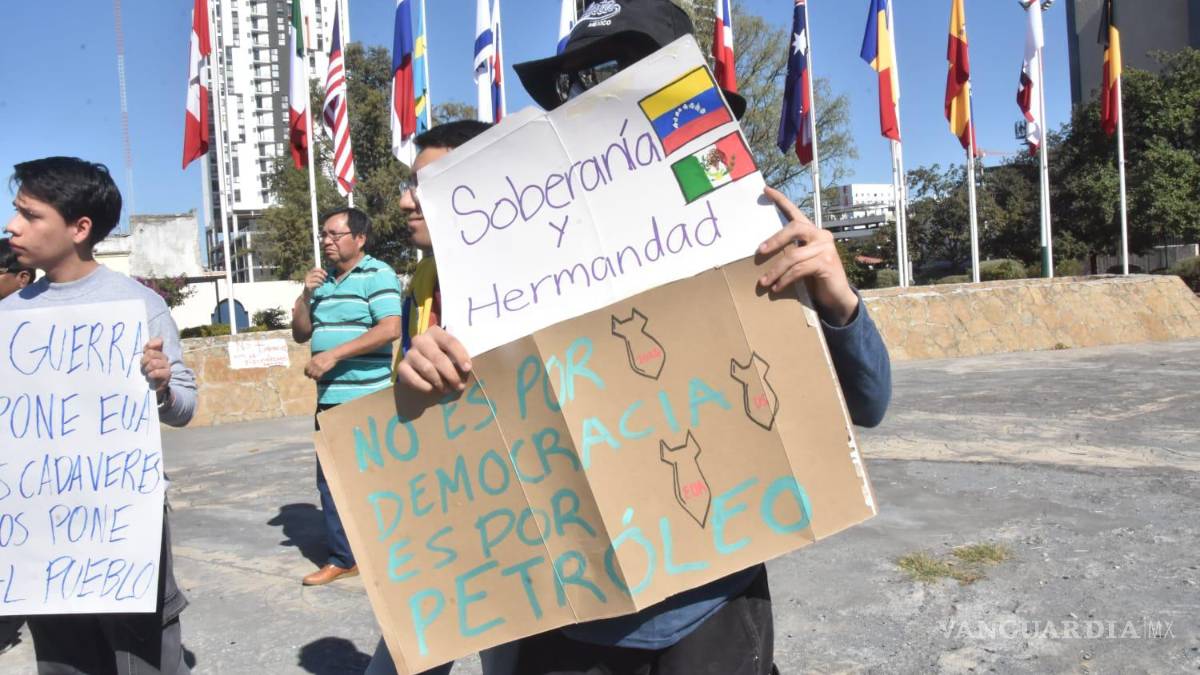 GUERRA
PONE EUA
CADAVERES
PONE
EL PUEBLO
Soberanía
y
Hermandad
NO ES POR
DEMOCRACIA
ES POR
PETRÓLEO
EUA
MÉXICO
VANGUARDIA MX